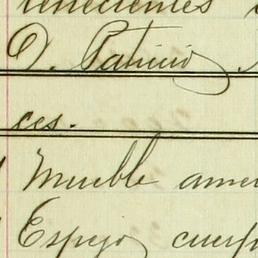 tenecientes
D. Patricio
ces.
Mueble amer
Espejo cuerp